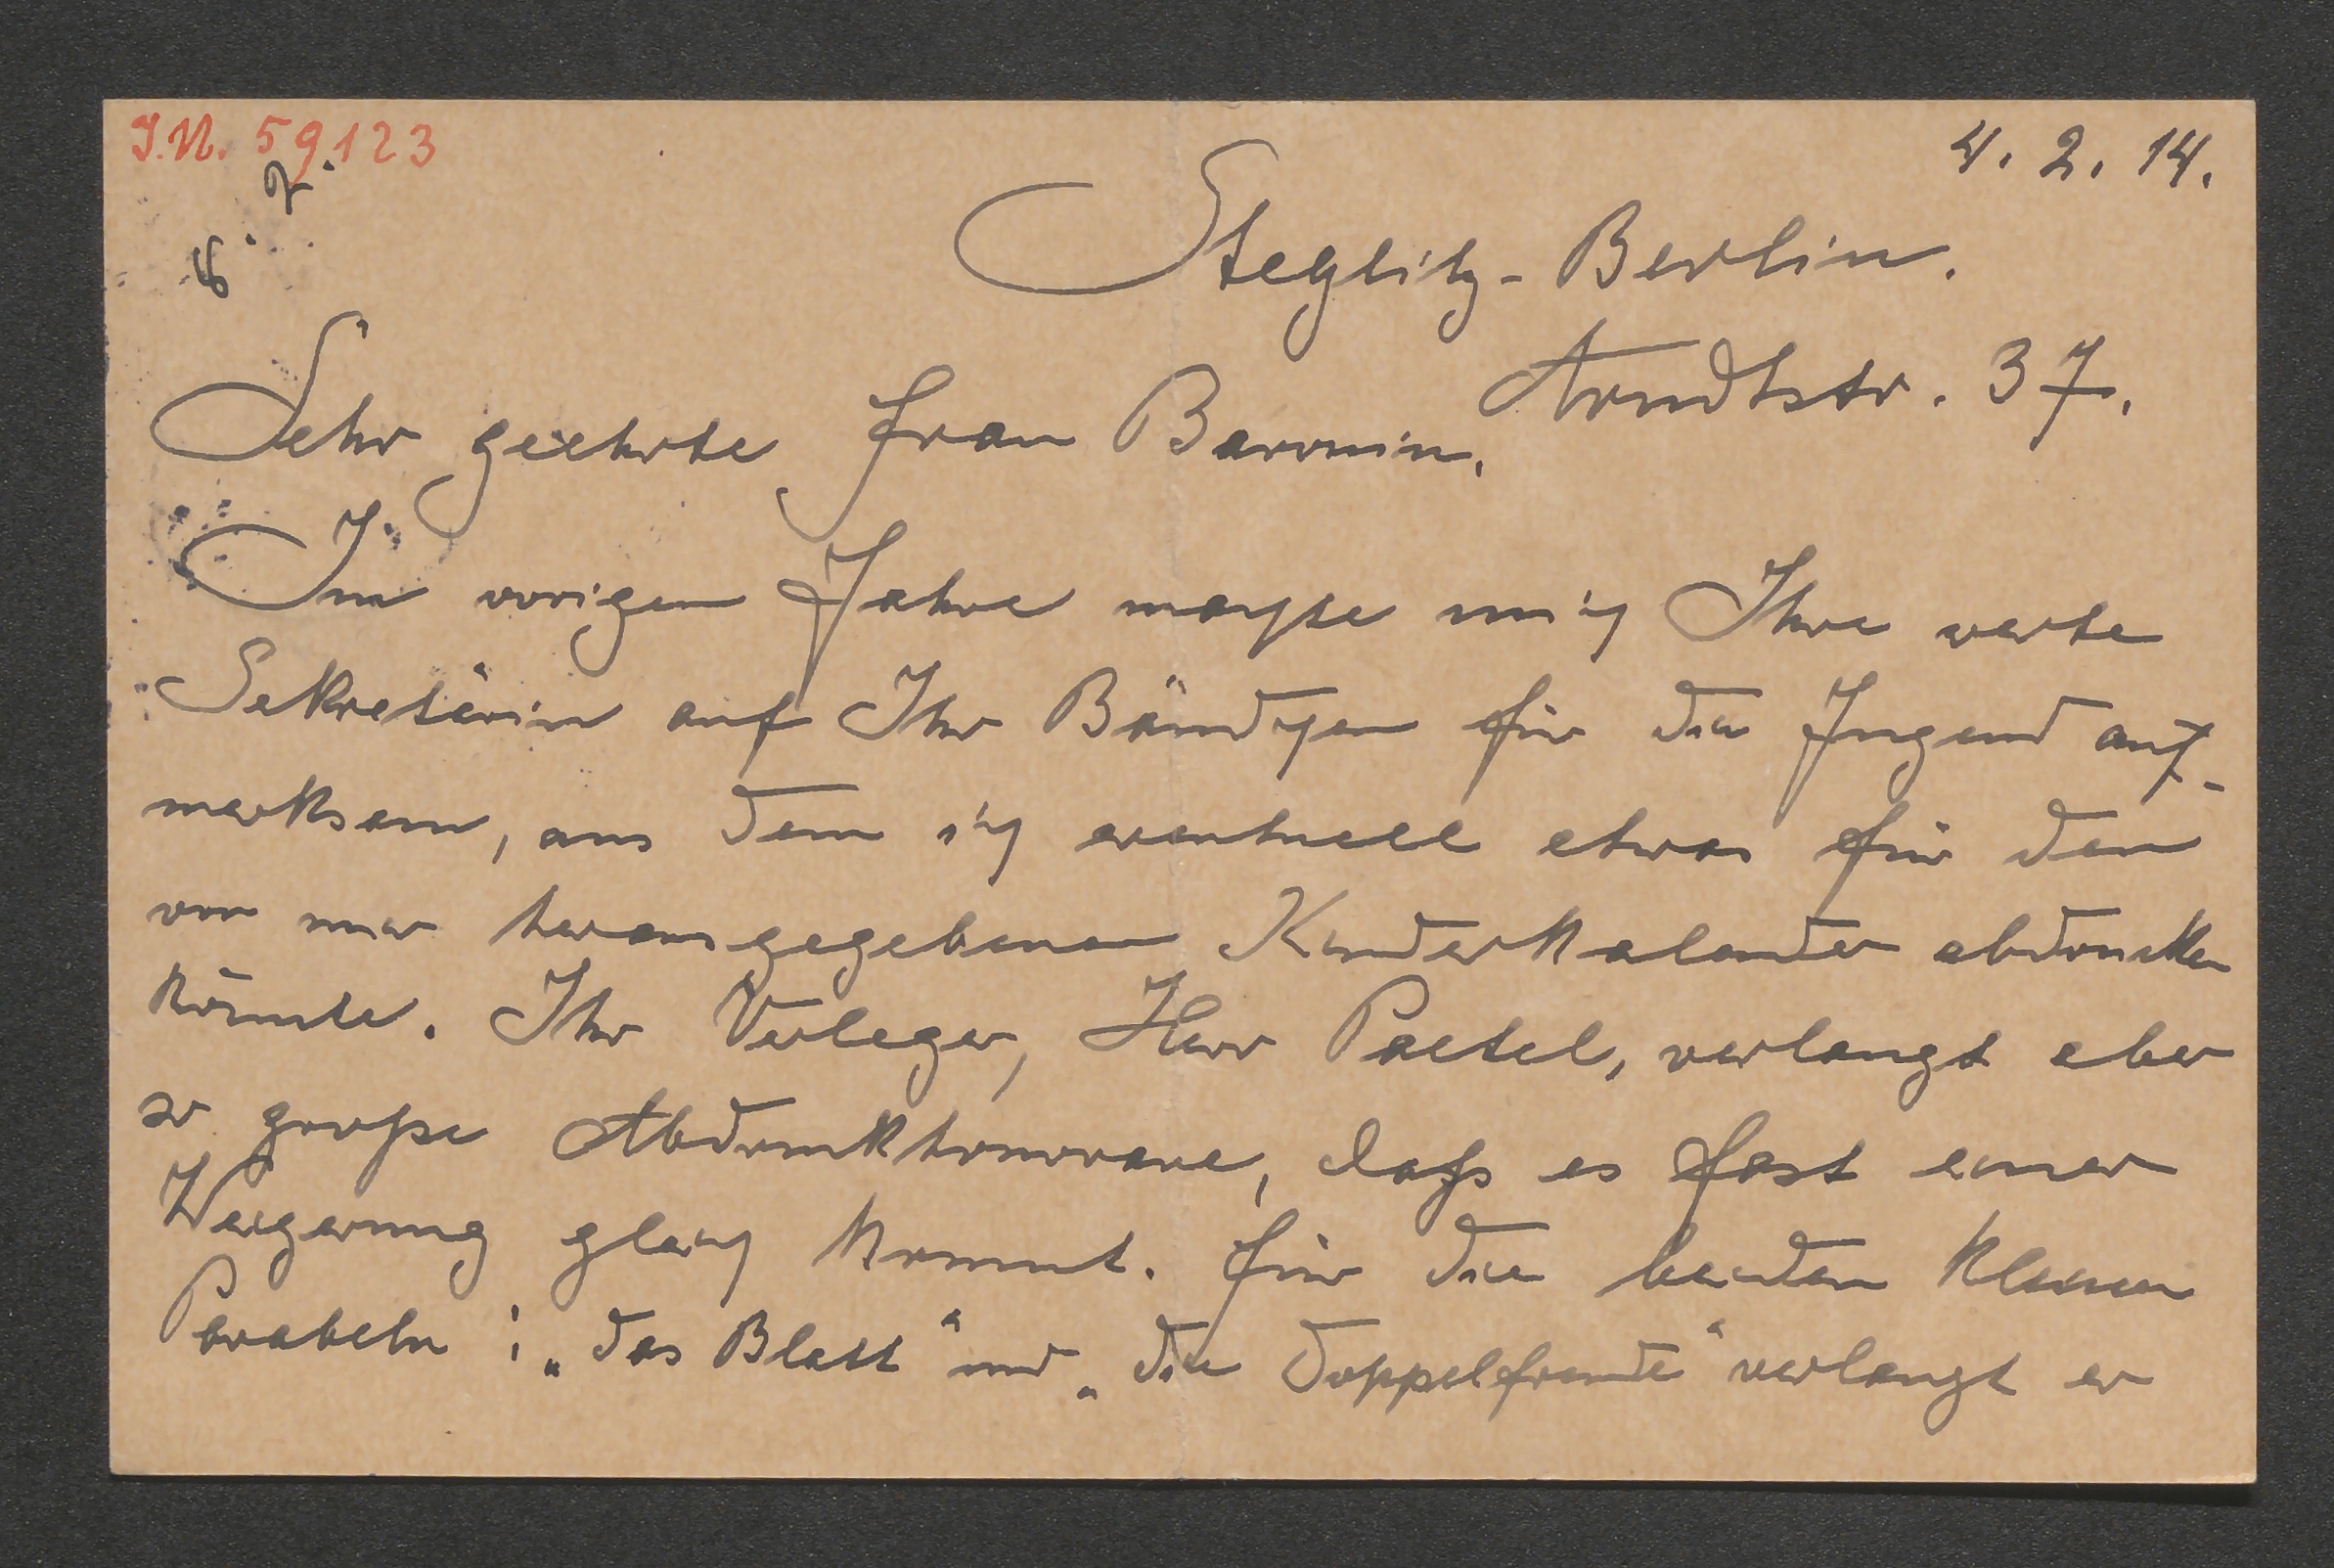 I.N. 59123
4. 2. 14.
8. 2.
Steglitz-Berlin.
Arndtstr. 37.
Sehr geehrte Frau Baronin,
Im vorigen Jahre machte mich Ihre werte
Sekretärin auf Ihr Bändchen für die Jugend auf-
merksam, aus dem ich eventuell etwas für den
von mir herausgegebenen Kinderkalender abdrucken
könnte. Ihr Verleger, Herr Paetel, verlangt aber
so große Abdruckhonorare, daß es fast einer
Weigerung gleich kommt. Für die beiden kleinen
Parabeln: „Das Blatt“ und „Die Doppelfreude“ verlangt er